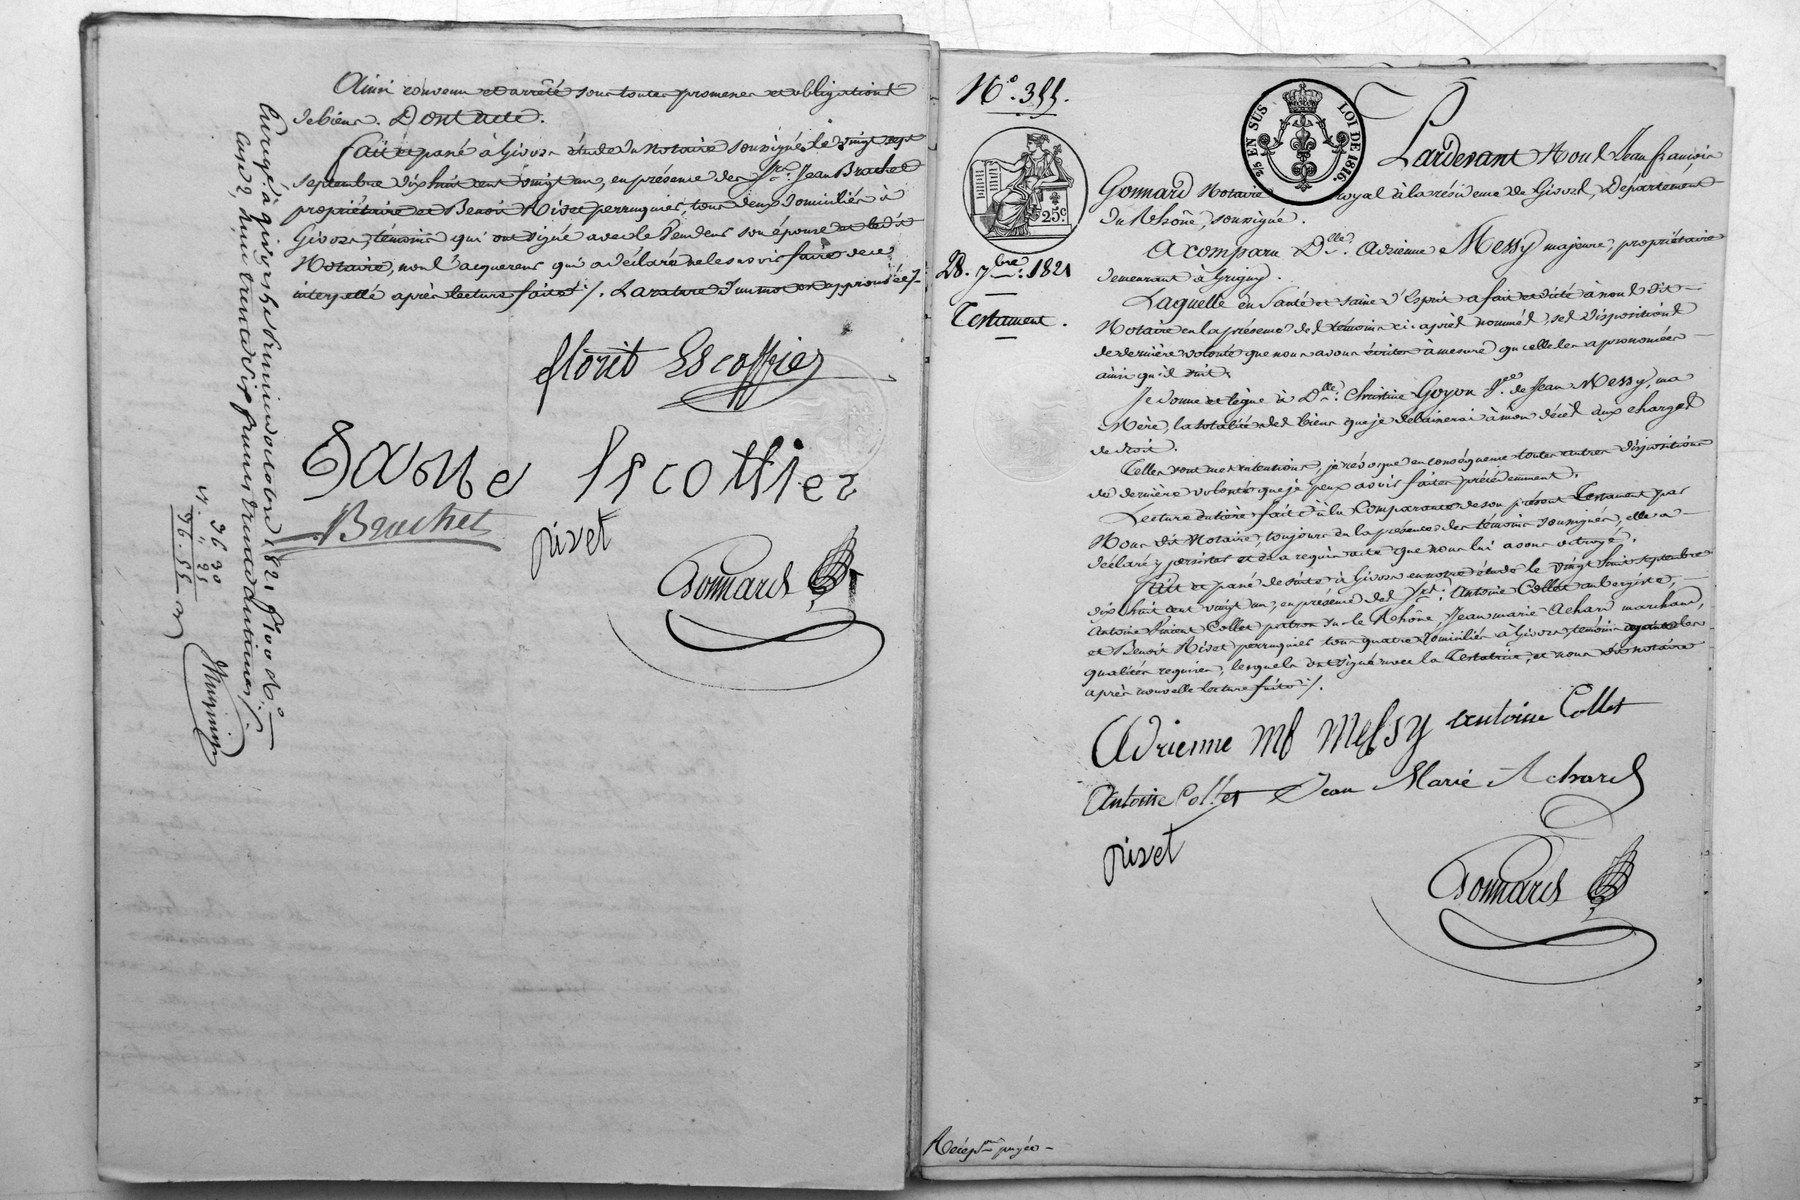 Ainsi convenu et arrêté sous toutes promesses et obligations
de biens. Dont acte.
Fait et passé à Givors étude du Notaire soussigné, le vingt sept
septembre dix huit cent vingt un, en présence des Srs. Jean Brachet
propriétaire et Benoit Rivet perruquier, tous deux domiciliés à
Givors, témoins qui ont signé avec le Vendeur son épouse et le dit
Notaire, non l'acquereur qui a déclaré ne le savoir faire de ce
interpellé après lecture faite ./. La rature d'un mot est approuvée ./.
florit Escoffier
Brachet
rivet
Gonnard
Enregé à givors le premier octobre 1821 fo 100 Ro
Case 2, reçu trente six francs trente centimes ./.
36 30
N° 355.
EN SUS
LOI DE 1816.
25c
28. 7bre. 1821
Testament.
Pardevant Nous Jean François
Gonnard Notaire royal à la résidence de Givors, Département
du Rhône, soussigné.
A comparu Dlle. Adrienne Messy majeure, propriétaire
demeurant à Grigny.
Laquelle en Santé et saine d'Esprit a fait et dicté à nous dit
Notaire en la présence des témoins ci-après nommés, ses dispositions
de dernière volonté que nous avons écrites à mesure qu'elle les a prononcées
ainsi qu'il suit.
Je donne et lègue à Dlle. Christine Goyon Vve. de Jean Messy, ma
Mère, la totalité des biens que je délaisserai à mon décès aux charges
de droit.
Telles sont mes intentions, je révoque en conséquence toutes autres dispositions
de dernière volonté que je peux avoir faites précédemment.
Lecture entière faite à la Comparante de son présent Testament par
Nous dit Notaire, toujours en la présence des témoins soussignés, elle a
déclaré y persister et en a requis acte que nous lui avons octroyé.
Fait et passé de suite à Givors en notre étude le vingt huit septembre
dix huit cent vingt un, en présence des Srs. Antoine Collet aubergiste,
Antoine Vincent Collet patron sur le Rhône, Jean marie Achard marchand,
et Benoit Rivet perruquier tous quatre domiciliés à Givors, témoins ayant les
qualités requises, lesquels ont signé avec la Testatrice, et nous dit notaire
après nouvelle lecture faite ./.
Adrienne Messy antoine Collet
Antoine Collet Jean Marie Achard
rivet
Gonnard